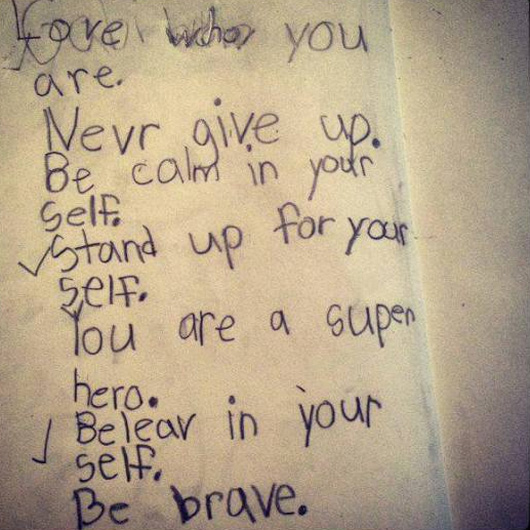 Love who you
are.
Nevr give up.
Be calm in your
self.
Stand up for your
self.
You are a super
hero.
Belear in your
self.
Be brave.